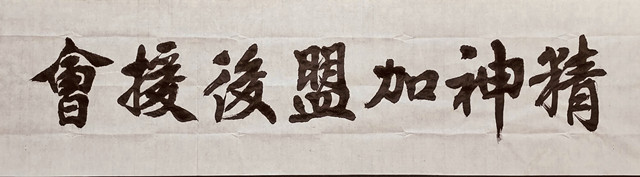 精神加盟後援會